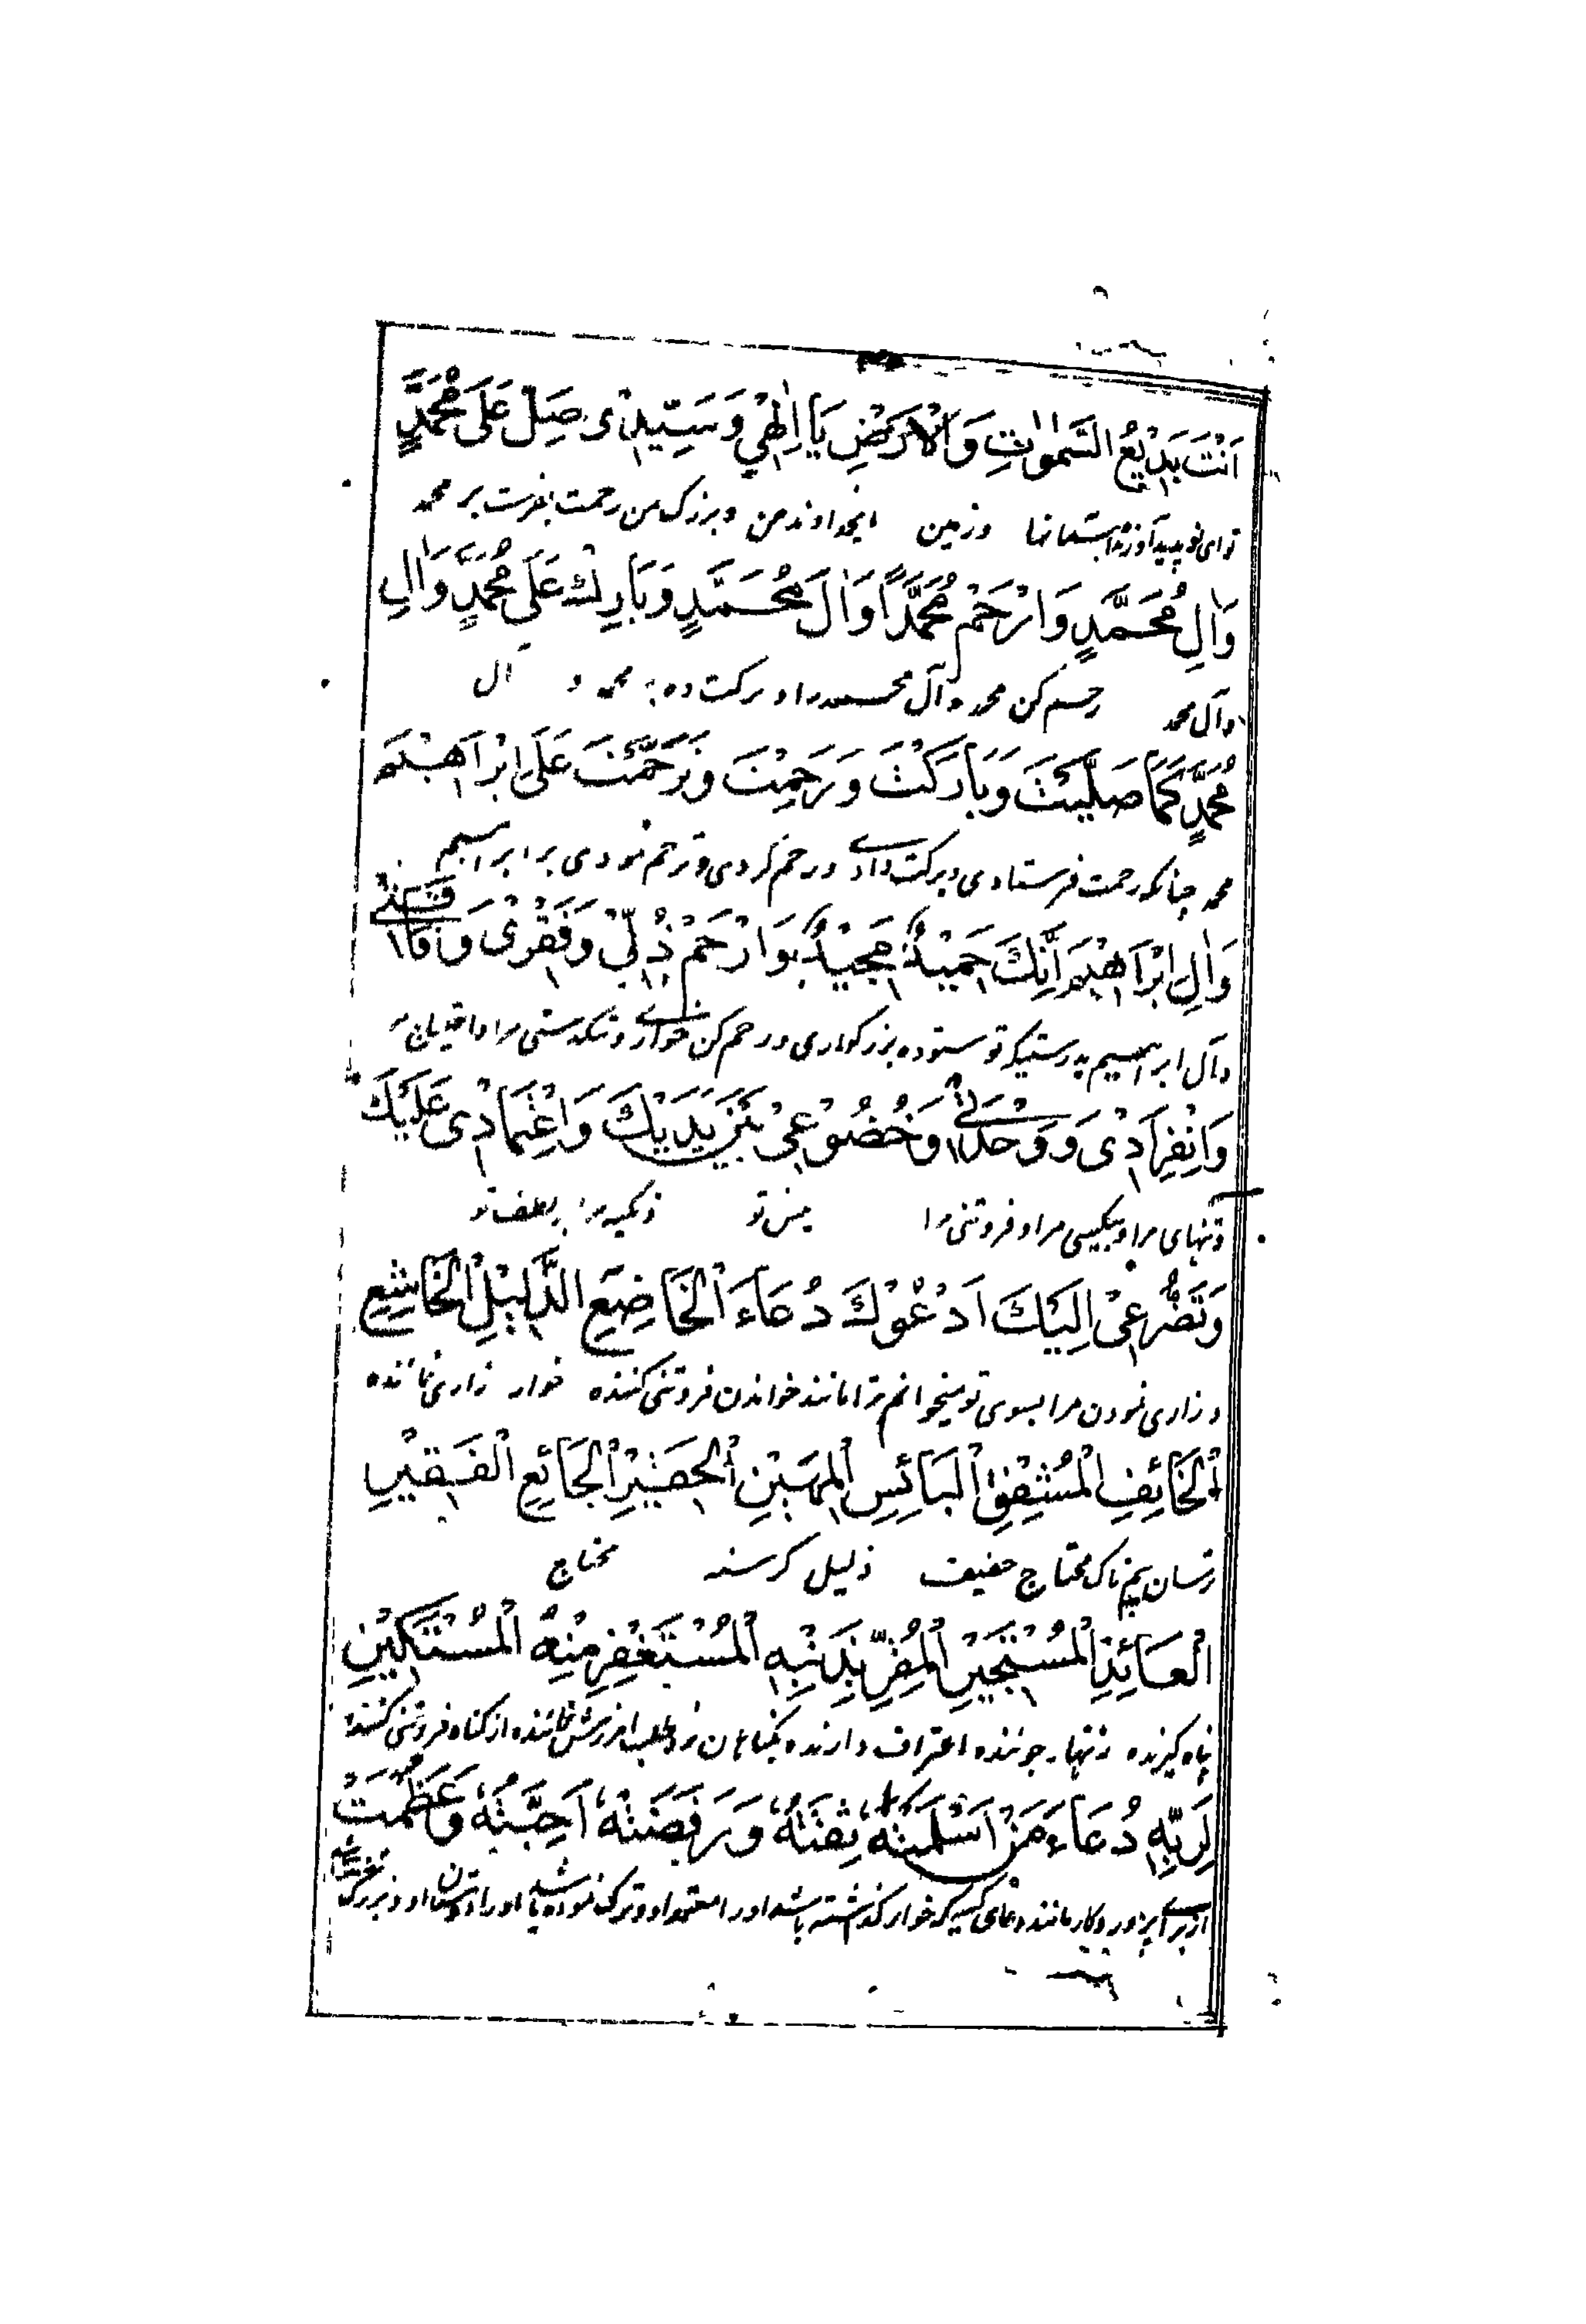 اَنْتَ بَدِیْعُ السَّمٰوٰاتِ وَالْاَرْضِ یَا اِلٰهِیْ وَسَیِّدِیْ صَلِّ عَلٰی مُحَمَّدٍ
تو ای نو پدید آورنده آسمانها وزمین ایخداوند من وبزرک من رحمت بفرست بر محمد
وَاٰلِ مُحَمَّدٍ وَارْحَمْ مُحَمَّدًا وَاٰلَ مُحَمَّدٍ وَبَارِكْ عَلٰی مُحَمَّدٍ وَاٰلِ
وآل محمد رحم کن محمد وآل محمد را و برکت ده بر محمد و آل
مُحَمَّدٍ كَمَا صَلَّیْتَ وَبَارَكْتَ وَرَحِمْتَ وَتَرَحَّمْتَ عَلٰی اِبْرَاهِیْمَ
محمد چنانکه رحمت فرستادی وبرکت دادی ورحم کردی وترحم نمودی بر ابراهیم
وَاٰلِ اِبْرَاهِیْمَ اِنَّكَ حَمِیْدٌ مَجِیْدٌ وَارْحَمْ ذُلِّیْ وَفَقْرِیْ وَفَاقَتِیْ
وآل ابراهیم بدرستیکه تو ستوده بزرکواری ورحم کن خواری وتنکدستی مرا
وَانْفِرَادِیْ وَوَحْدَتِیْ وَخُضُوْعِیْ بَیْنَ یَدَیْكَ وَاعْتِمَادِیْ عَلَیْكَ
وتنهای مرا وبیکسی مرا وفروتنی مرا پیش تو وتکیه مرا بلطف تو
وَتَضَرُّعِیْ اِلَیْكَ اَدْعُوْكَ دُعَاءَ الْخَاضِعِ الذَّلِیْلِ الْخَاشِعِ
و زاری نمودن مرا بسوی تو میخوانم ترا مانند خواندن فروتنی کننده خوار زاری نماینده
الْخَائِفِ الْمُشْفِقِ الْبَائِسِ الْمَهِیْنِ الْحَقِیْرِ الْجَائِعِ الْفَقِیْرِ
ترسان بیم ناک محتاج ذلیل کرسنه محتاج
الْعَائِذِ الْمُسْتَجِیْرِ الْمُقِرِّ بِذَنْبِهِ الْمُسْتَغْفِرِ مِنْهُ الْمُسْتَكِیْنِ
پناه کیرنده زنهار جوینده اعتراف دارنده بکناهان خود طلب امرزش نماینده از کناه فروتنی کننده
لِرَبِّهِ دُعَاءَ مَنْ اَسْلَمَتْهُ ثِقَتُهُ وَرَفَضَتْهُ اَحِبَّتُهُ وَعَظُمَتْ
از برای پروردکار مانند دعای کسیکه خوار کذاشته باشد اورا معتمد او وترک نموده باشد اورا دوستان او وبزرک